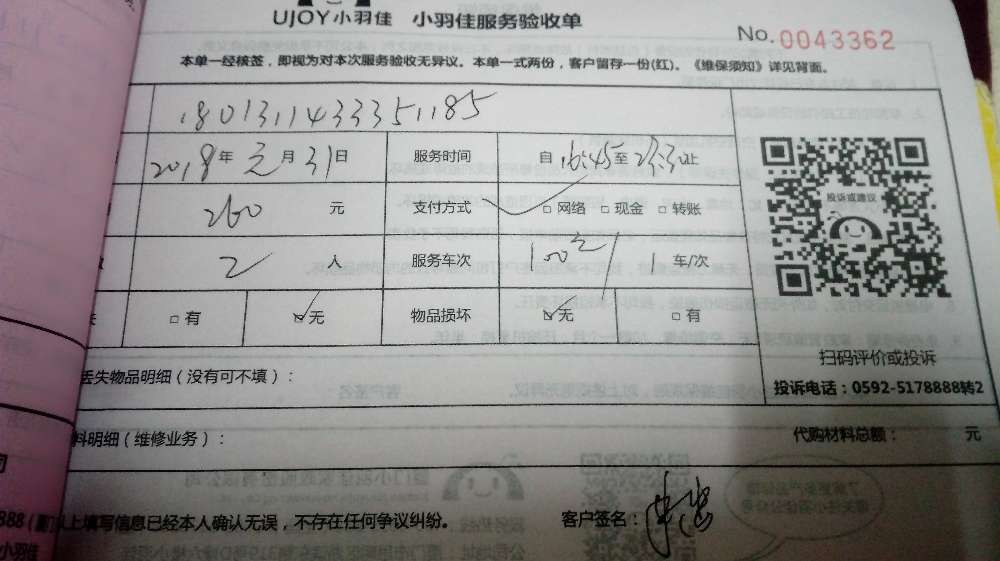 UJOY小羽佳 小羽佳服务验收单
No. 0043362
本单一经核签，即视为对本次服务验收无异议。本单一式两份，客户留存一份(红)。《维保须知》详见背面。
1801311433351185
2018年 元月31日 服务时间 自16:45至23:3止
260 元 支付方式 □网络 □现金 □转账
投诉或建议
2 人 服务车次 1 车/次
□有 □无 物品损坏 □无 □有
扫码评价或投诉
丢失物品明细（没有可不填）：
投诉电话：0592-5178888转2
料明细（维修业务）： 代购材料总额： 元
上填写信息已经本人确认无误，不存在任何争议纠纷。 客户签名：
小羽佳